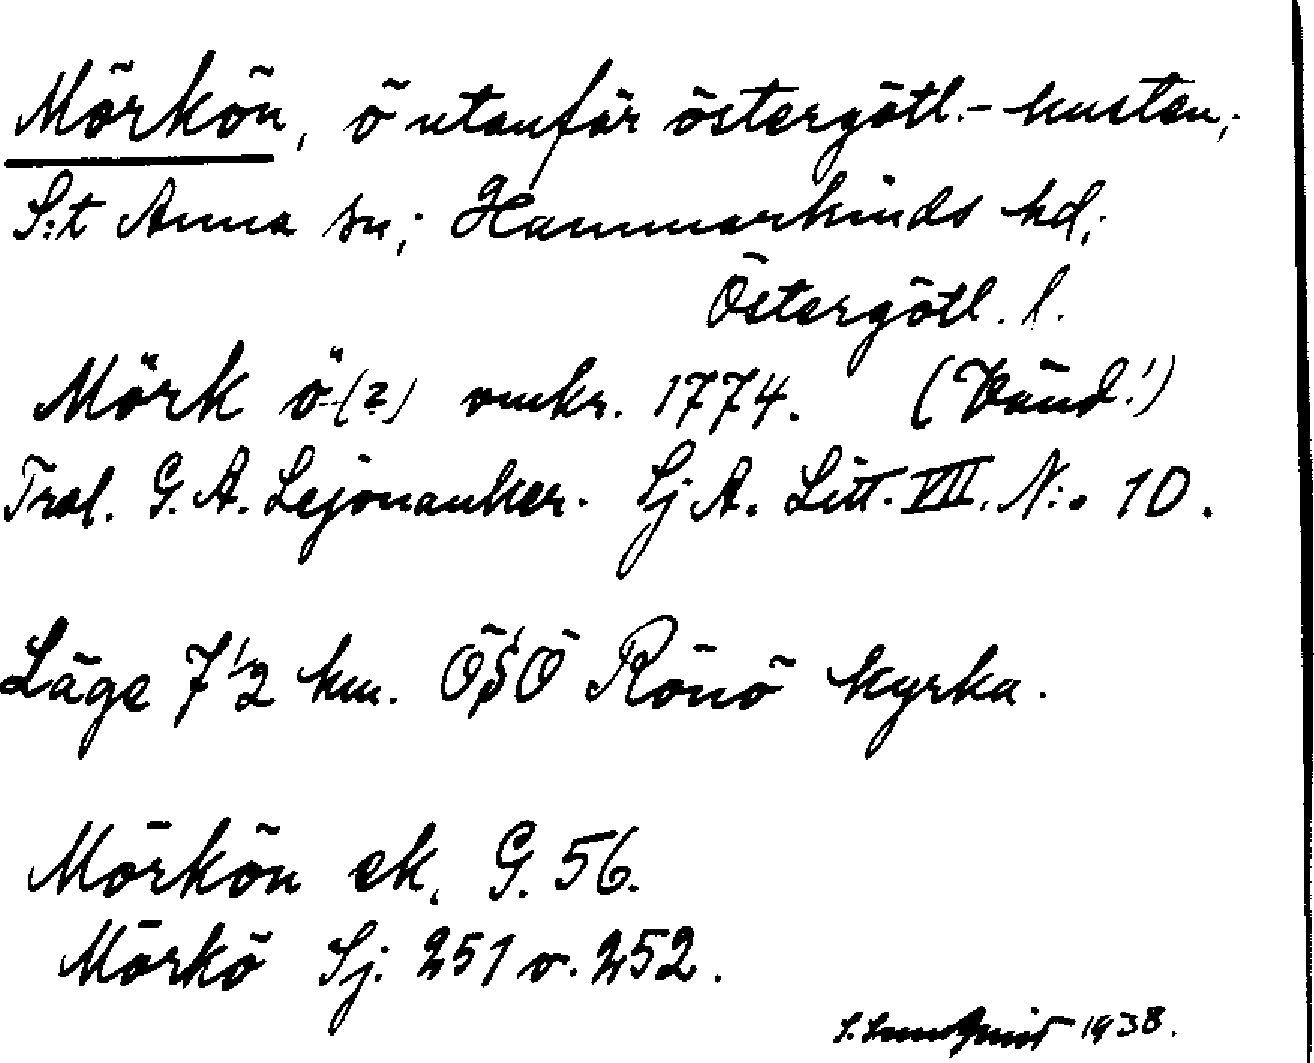 Mörkön, ö utanför östergötl.-kusten;
S:t Anna sn; Hammarkinds hd;
Östergötl. l.
Mörk ö (?) omkr. 1774. (Vänd!)
Trol. G. A. Lejonanker. Sj A. Litt. VIII. N:o 10.
Läge 7 1/2 km. ÖSÖ Rönö kyrka.
Mörkön ek. G. 56.
Mörkö Sj. 251 o. 252.
1938.